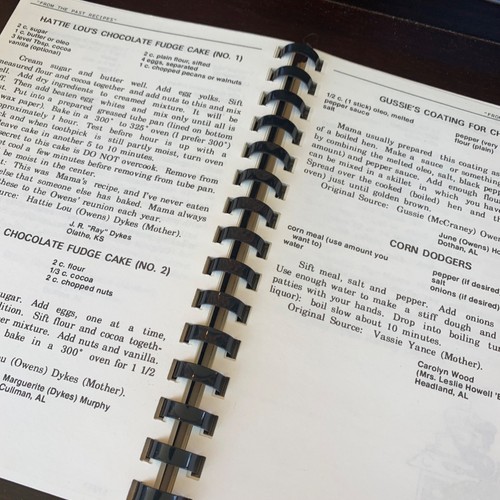 "FROM THE PAST RECIPES"
HATTIE LOU'S CHOCOLATE FUDGE CAKE (NO. 1)
2 c. sugar
1 c. butter or oleo
3 level Tbsp. cocoa
vanilla (optional)
2 c. plain flour, sifted
4 eggs, separated
1 c. chopped pecans or walnuts
Cream sugar and butter well. Add egg yolks. Sift
measured flour and cocoa together and add nuts to this and mix
well. Add dry ingredients to creamed mixture. It will be
stiff. Then add beaten egg whites and mix only until all is
Put into a prepared greased tube pan (lined on bottom
wax paper). Bake in a 300° to 325° oven (I prefer 300°)
approximately 1 hour. Test before hour is up with
and when toothpick is still partly moist, turn oven
leave cake in another 5 to 10 minutes.
secret to this cake is DO NOT overcook. Remove from
cool a few minutes before removing from tube pan.
be moist in the center.
This was Mama's recipe, and I've never eaten
else that someone else has baked. Mama always
these to the Owens' reunion each year.
Source: Hattie Lou (Owens) Dykes (Mother).
J. R. "Ray" Dykes
Olathe, KS
CHOCOLATE FUDGE CAKE (NO. 2)
2 c. flour
1/3 c. cocoa
2 c. chopped nuts
sugar. Add eggs, one at a time,
Sift flour and cocoa togeth-
mixture. Add nuts and vanilla.
bake in a 300° oven for 1 1/2
(Owens) Dykes (Mother).
Marguerite (Dykes) Murphy
Cullman, AL
GUSSIE'S COATING FOR
1/2 c. (1 stick) oleo, melted
pepper sauce
salt
pepper (very
flour (plain)
Mama usually prepared this coating
of a boiled hen. Make a sauce or
by combining the melted oleo, salt, black
amount) and pepper sauce. Add enough
can be mixed in a skillet in which you have
Spread over the cooked (boiled) hen and
oven) just until golden brown
Original Source: Gussie (McCraney)
June (Owens)
Dothan, AL
CORN DODGERS
corn meal (use amount you
want to)
water
pepper (if desired)
salt
onions (if desired)
Sift meal, salt and pepper. Add onions
Use enough water to make a stiff dough and
patties with your hands. Drop into boiling
liquor); boil slow about 10 minutes.
Original Source: Vassie Yance (Mother).
Carolyn Wood
(Mrs. Leslie Howell
Headland, AL